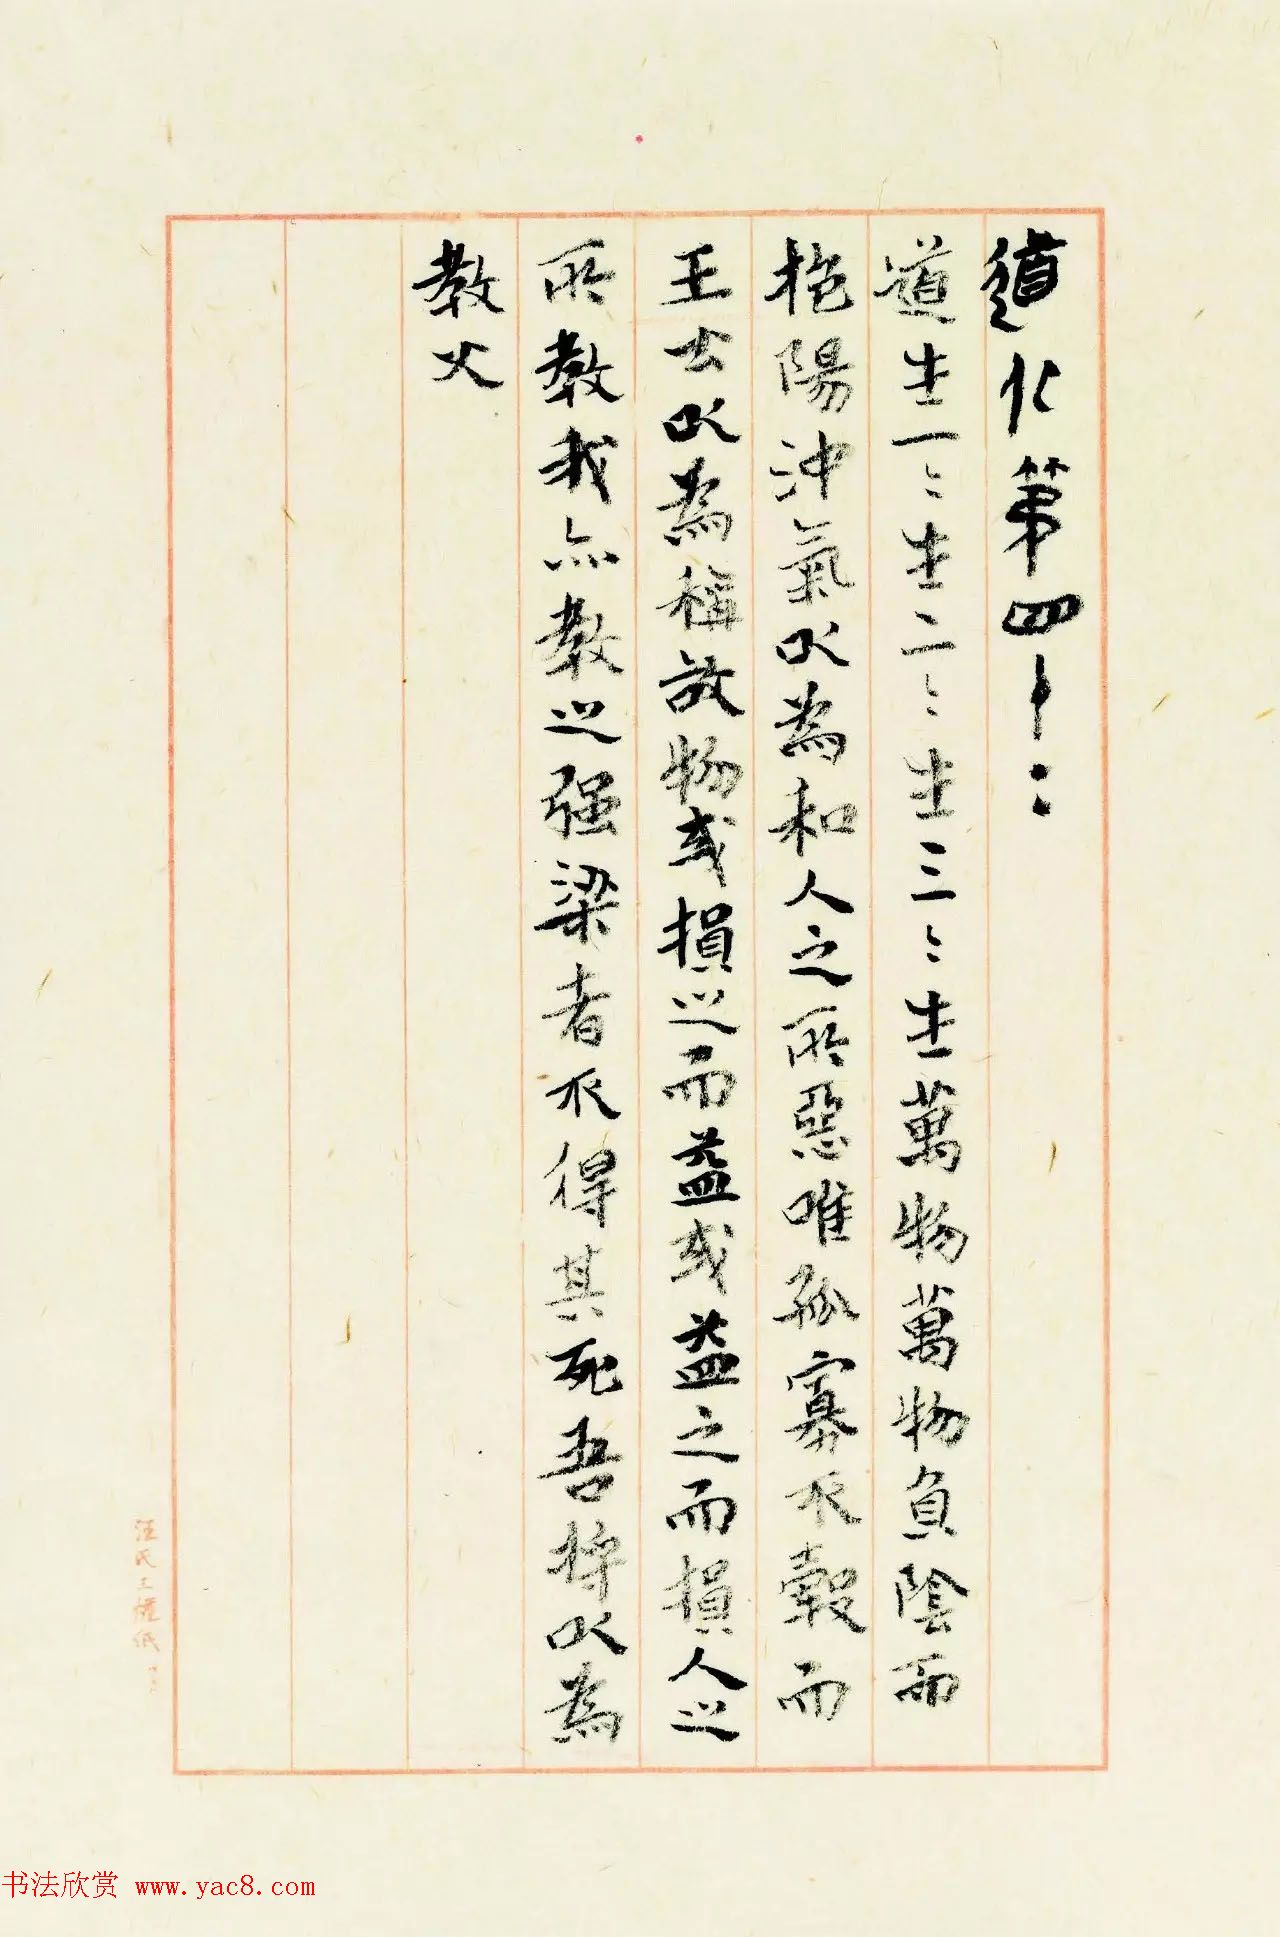 道化第四十二
道生一〻生二〻生三〻生萬物萬物負陰而
抱陽沖氣以為和人之所惡唯孤寡不轂而
王公以為稱故物或損之而益或益之而損人之
所教我亦教之强梁者不得其死吾將以為
教父
书法欣赏 www.yac8.com